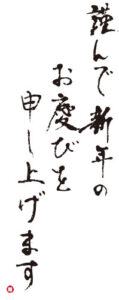 謹んで新年の
お慶びを
申し上げます